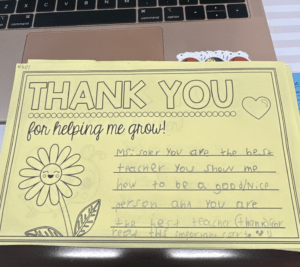 THANK YOU
for helping me grow!
you are the best
teacher you show me
how to be a good/nice
person and you are
the best teacher
read this
command option
command